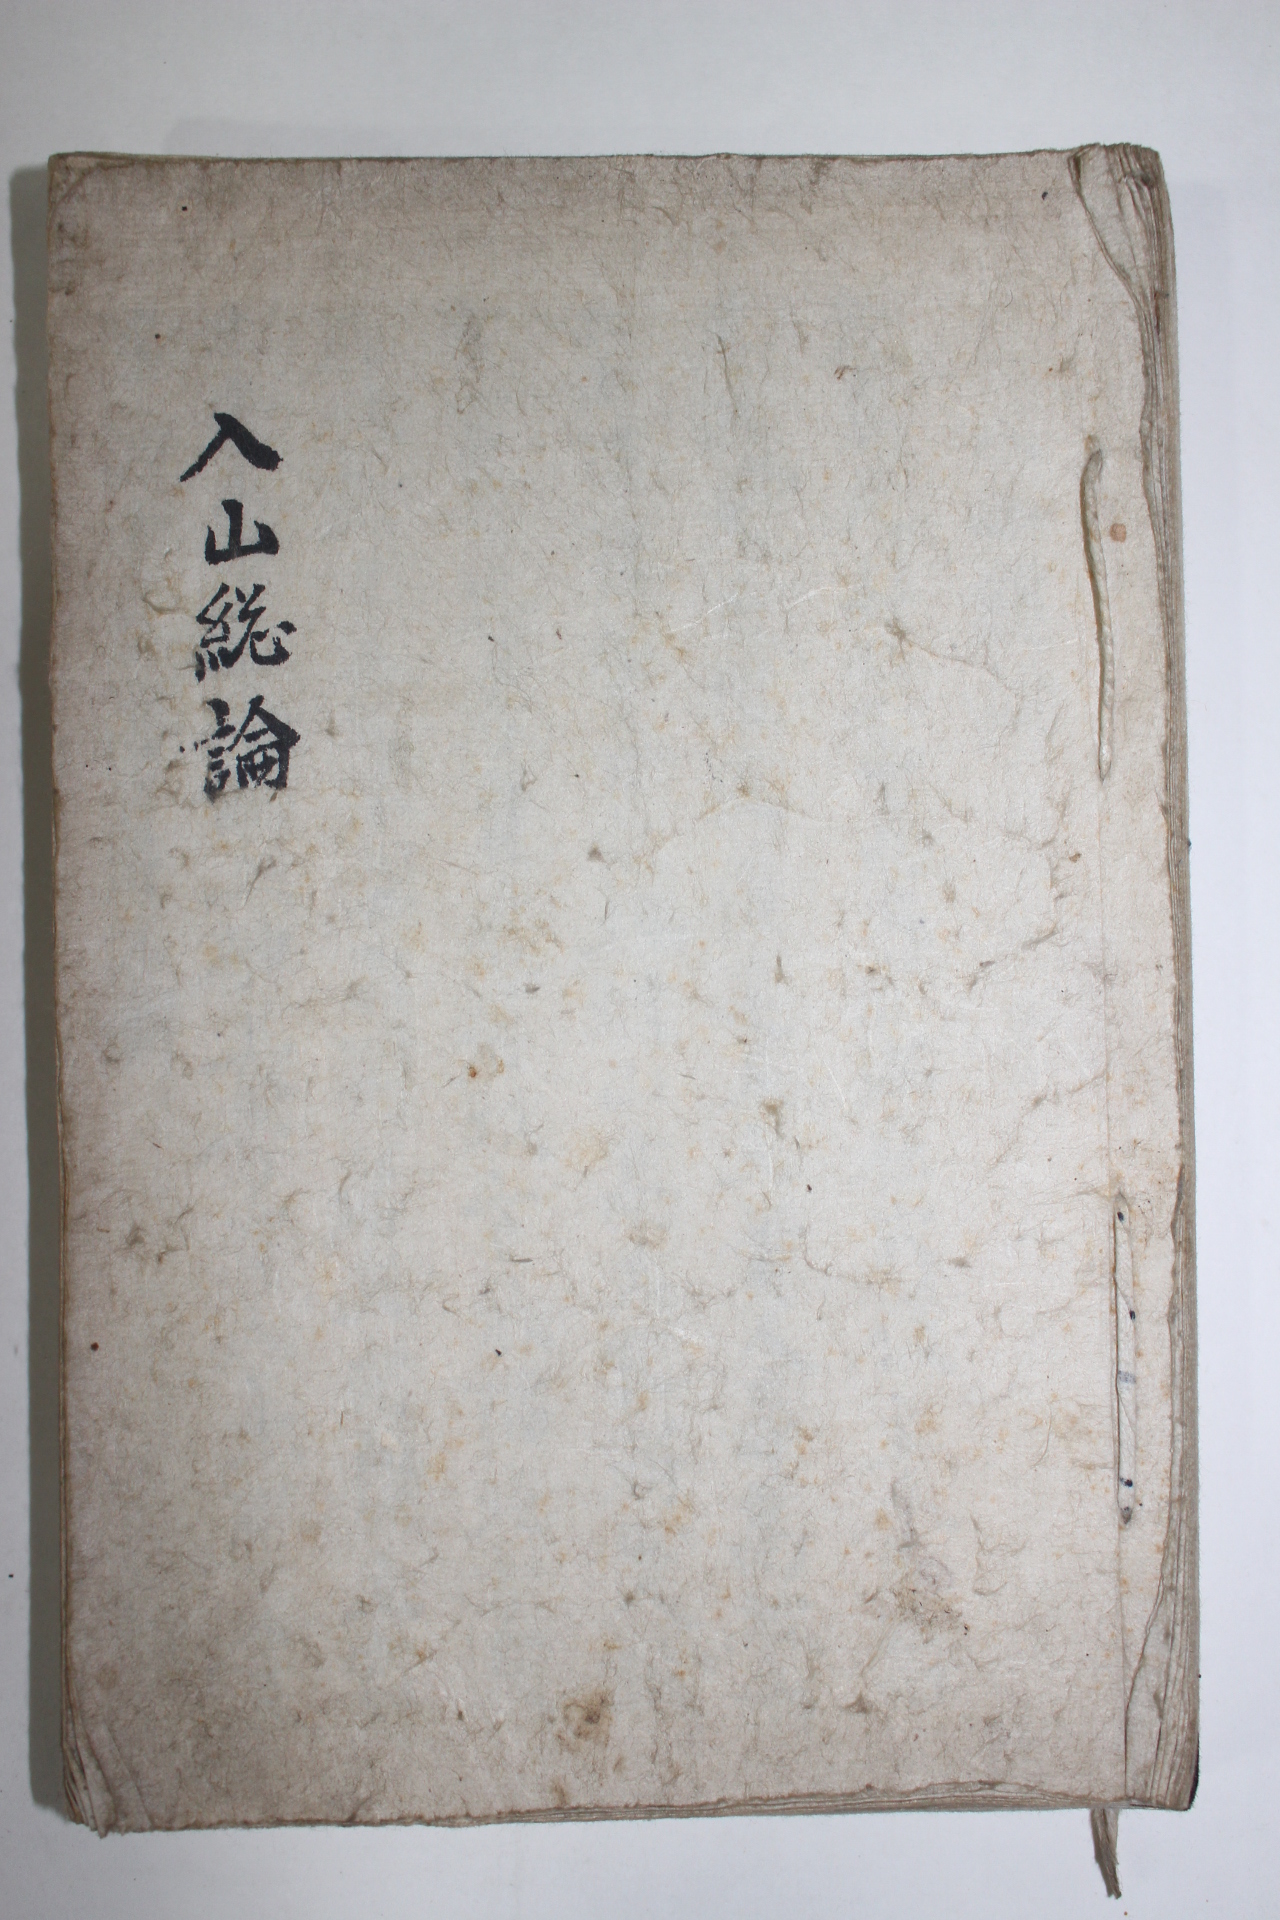 入山総論